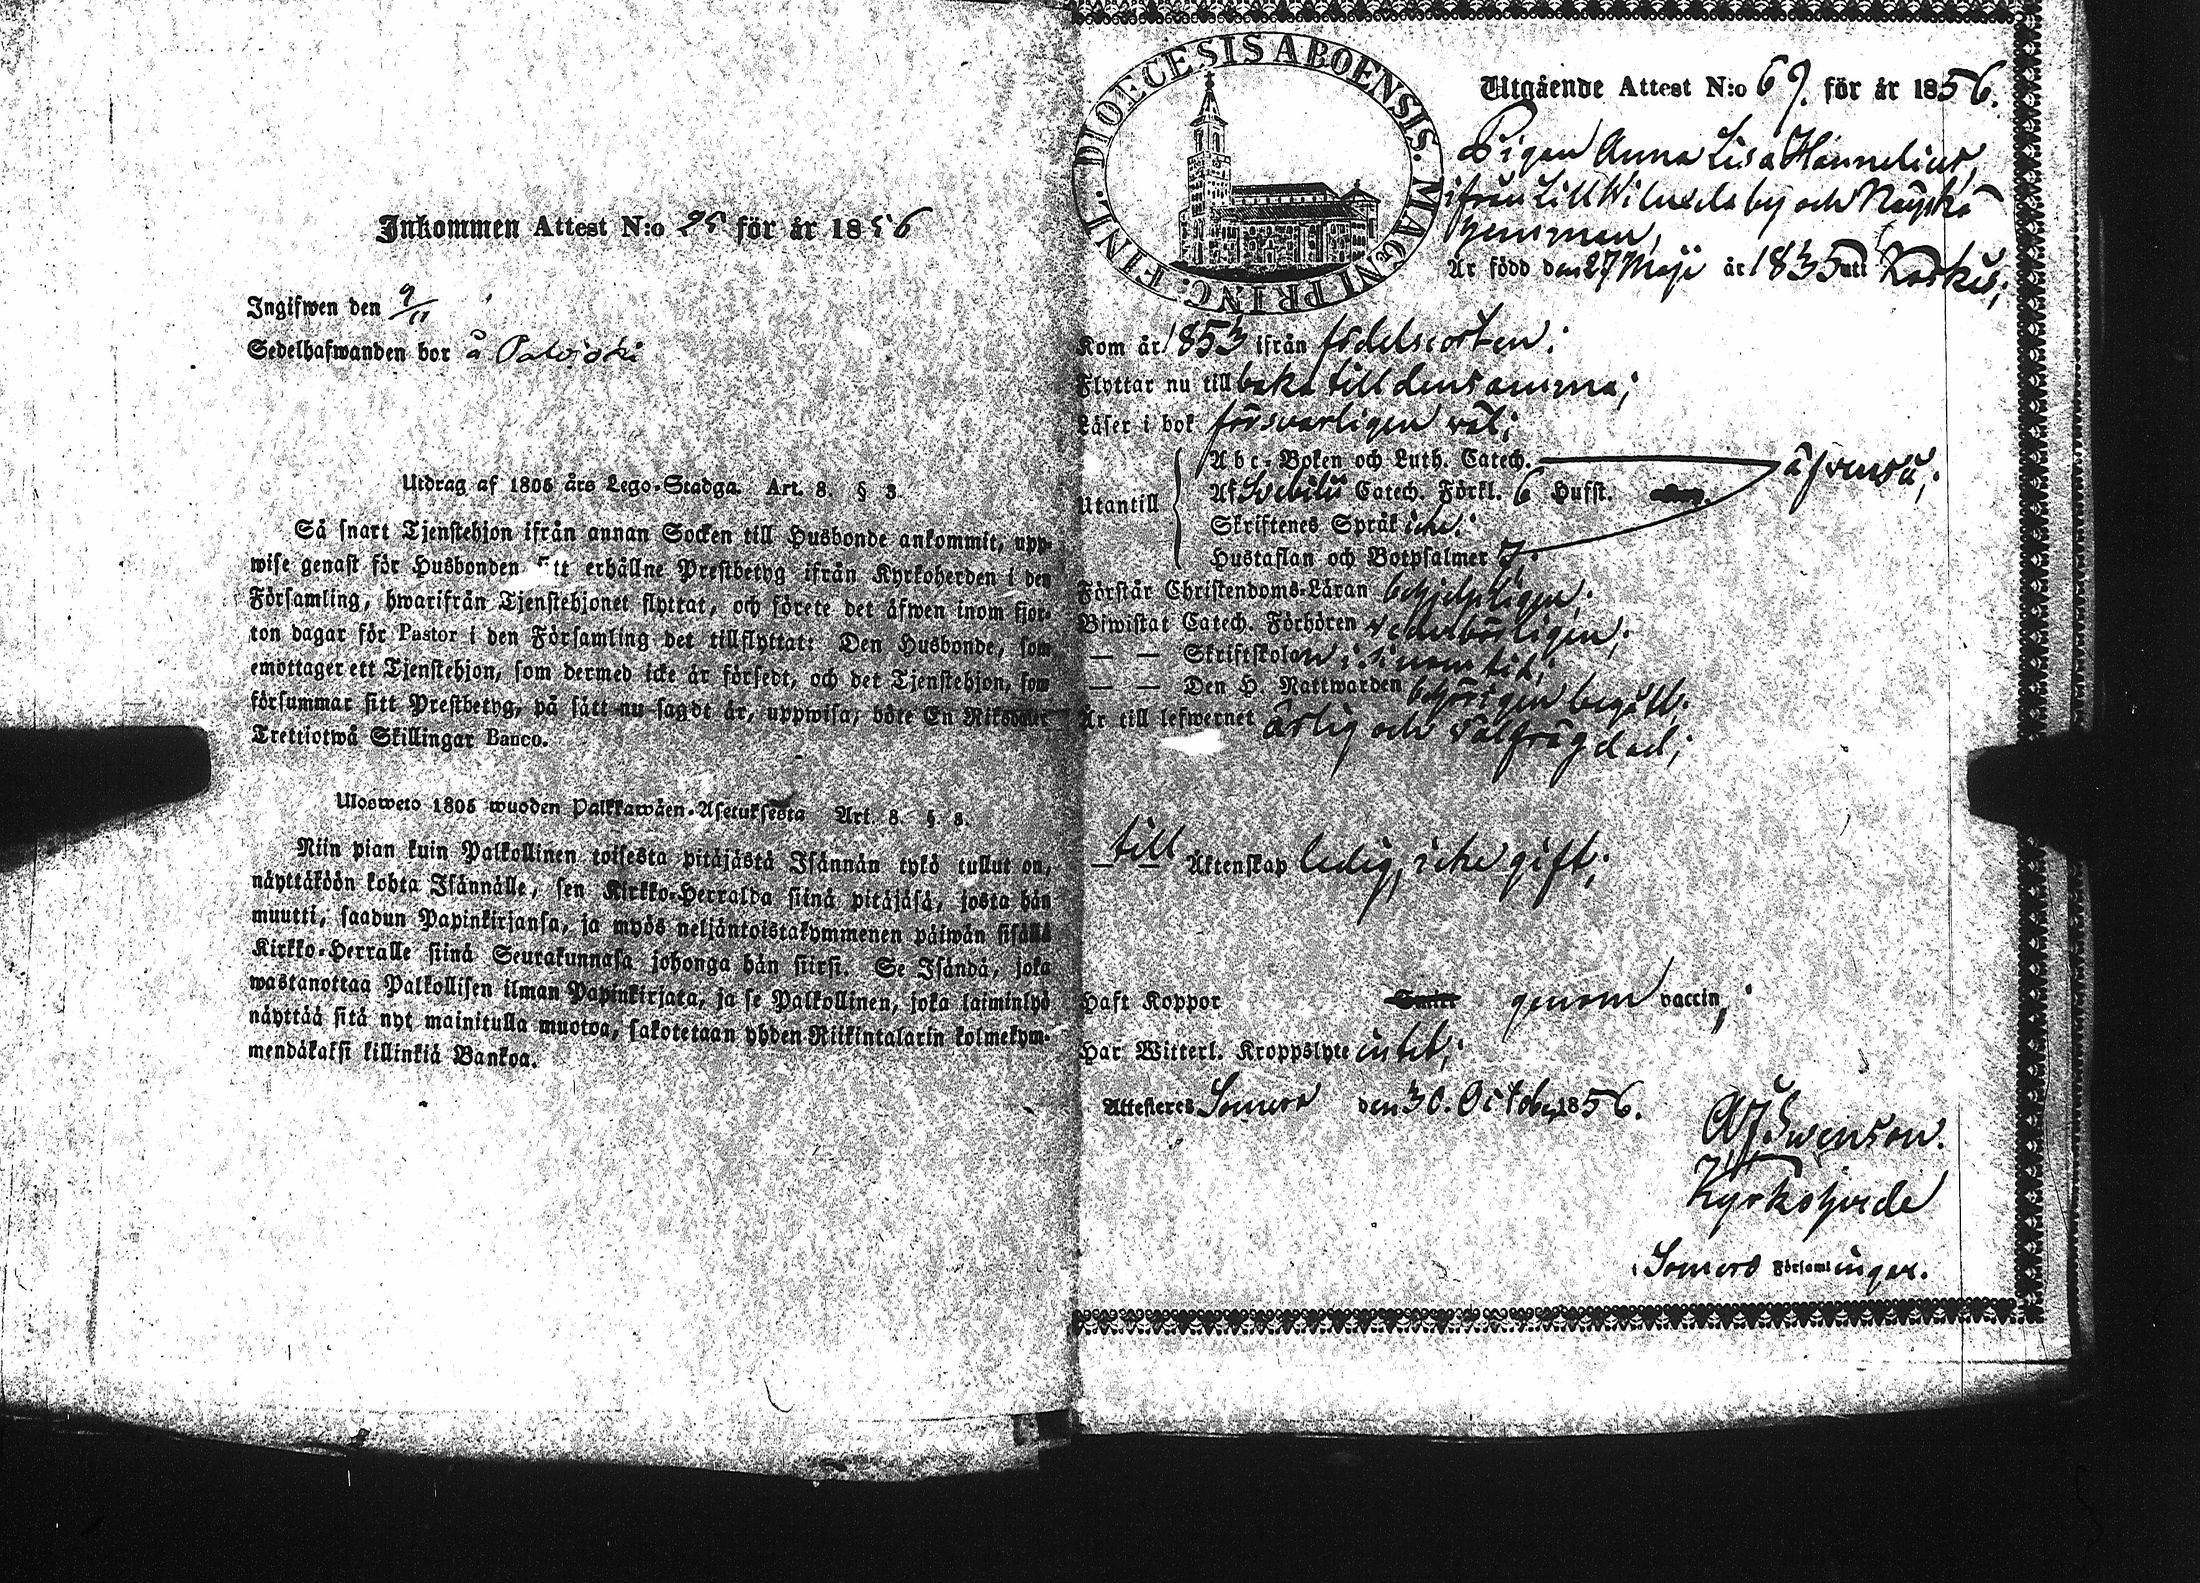 Inkommen Attest N:o 25 för år 1856
Ingifwen den 9/11
Sedelhafwanden bor å Palojoki
Utdrag af 1805 års Lego-Stadga. Art. 8. § 3.
Så snart Tjenstehjon ifrån annan Socken till Husbonde ankommit, upp-
wise genast för Husbonden sitt erhållne Prestbetyg ifrån Kyrkoherden i den
Församling, hwarifrån Tjenstehjonet flyttat, och förete det äfwen inom fjor-
ton dagar för Pastor i den Församling det tillflyttat: Den Husbonde, som
emottager ett Tjenstehjon, som dermed icke är försedt, och det Tjenstehjon, som
försummar sitt Prestbetyg, på sätt nu sagdt är, uppwisa, böte En Riksdaler
Trettiotwå Skillingar Banco.
Ulosweto 1805 wuoden Palkkawäen-Asetuksesta Art. 8. §. 3.
Niin pian kuin Palkollinen toisesta pitäjästä Isännän tykö tullut on,
näyttäköön kohta Isännälle, sen Kirkko-Herralda siinä pitäjäsä, josta hän
muutti, saadun Papinkirjansa, ja myös neljäntoistakymmenen päiwän sisällä
Kirkko-Herralle siinä Seurakunnasa johonga hän siirsi. Se Isändä, joka
wastanottaa Palkollisen ilman Papinkirjata, ja se Palkollinen, joka laiminlyö
näyttää sitä nyt mainitulla muotoa, sakotetaan yhden Riikintalarin kolmekym-
mendäkaksi killinkiä Bankoa.
DIOECESIS ABOENSIS. MAGNI PRINC. FINL.
Utgående Attest N:o 69. för år 1856.
Pigan Anna Lisa Hannelius,
ifrån Lill Wilusela by och Näyskä
hemman,
Är född den 27 Maji år 1835 uti Koskis;
Kom år 1853 ifrån födelseorten;
Flyttar nu till baka till densamma;
Läser i bok försvarligen wäl;
Utantill
Abc-Boken och Luth. Catech. äfvenså;
Af Svebilii Catech. Förkl. 6 Hufst.
Skriftenes Språk icke;
Hustaflan och Botpsalmer 7;
Förstår Christendoms-Läran behjelpligen;
Biwistat Catech. Förhören wederbörligen;
— — Skriftskolan i sinom tid;
— — Den H. Nattwarden behörigen begått;
Är till lefwernet ärlig och wälfrägdad;
— till — Äktenskap ledig, icke gift;
Haft Koppor genom vaccin;
Har Witterl. Kroppslyte intet;
Attesteres Somero den 30. October 1856.
A J Swenson.
Kyrkoherde
i Somero Församlingar.